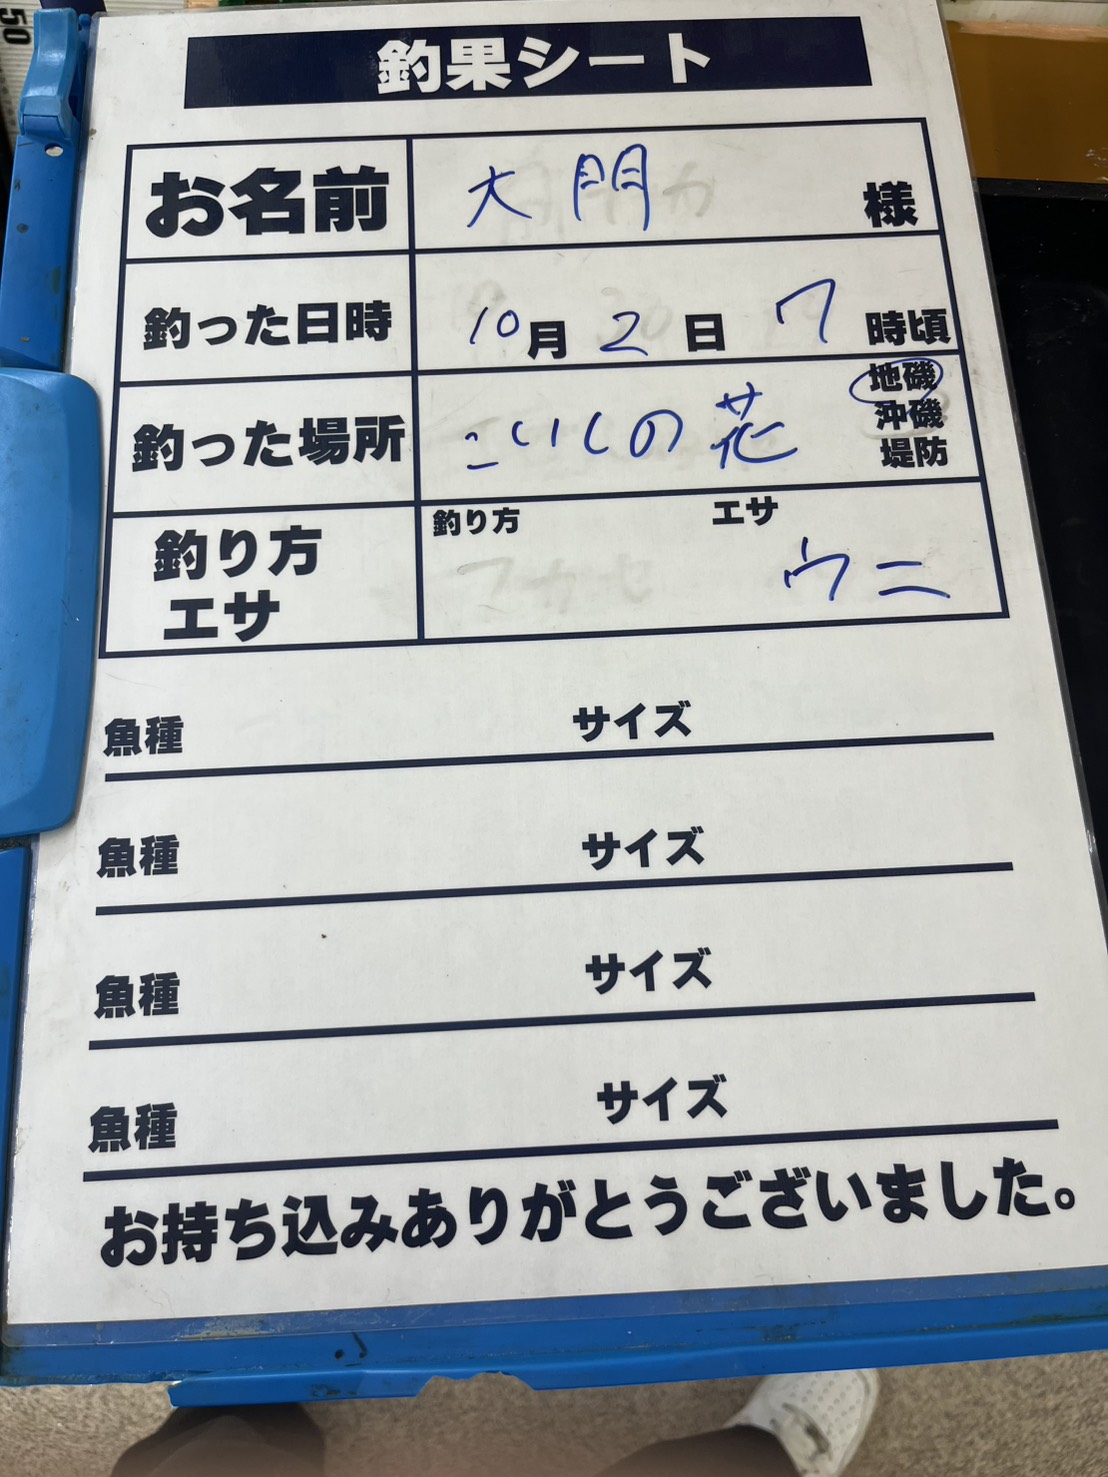 釣果シート
お名前 大門 様
釣った日時 10月2日 7時頃
釣った場所 こいしの花 地磯
沖磯
堤防
釣り方 エサ
釣り方
エサ
ウニ
魚種 サイズ
魚種 サイズ
魚種 サイズ
魚種 サイズ
お持ち込みありがとうございました。
50